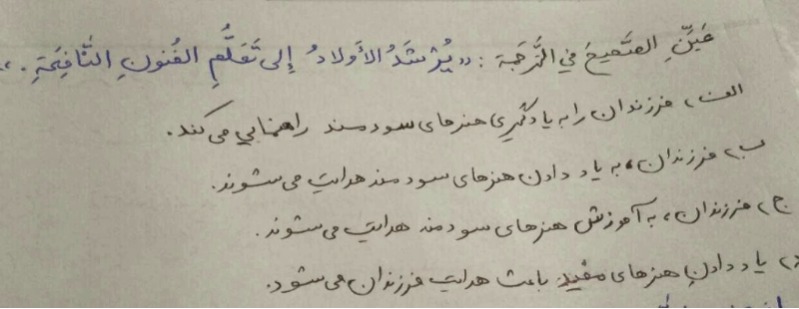 عَيِّنِ الصَّحيحَ في التَّرجَمَةِ : «يُرْشَدُ الأَولادُ إلی تَعَلُّمِ الفُنونِ النّافِعَةِ.»
الف) فرزندان را به یادگیری هنرهای سودمند راهنمایی می‌کند.
ب) فرزندان، به یاد دادن هنرهای سودمند هدایت می‌شوند.
ج) فرزندان، به آموزش هنرهای سودمند هدایت می‌شوند.
د) یاد دادن هنرهای مفید باعث هدایت فرزندان می‌شود.